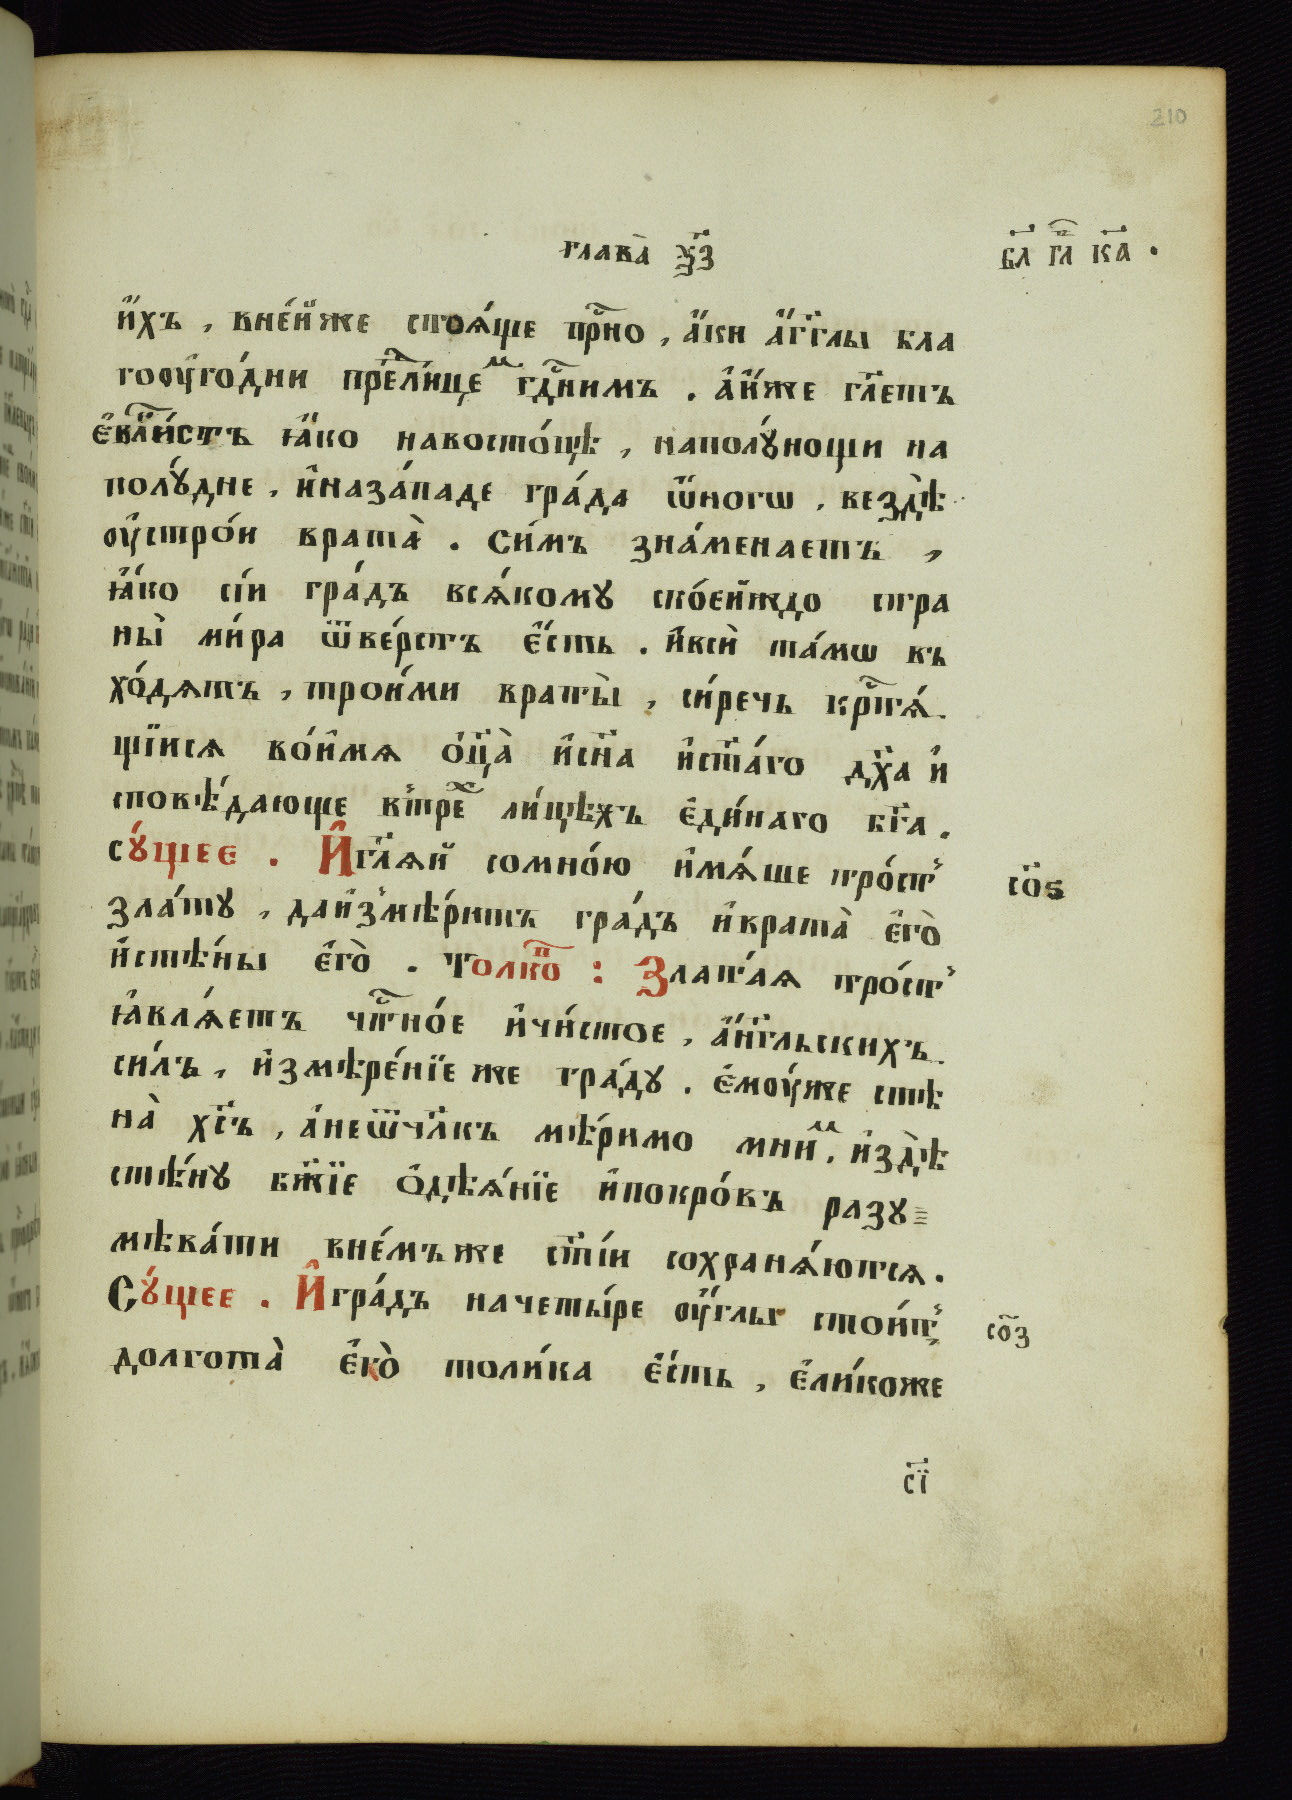 210
глава̀ ѯ҃з
в҃л г҃л к҃а .
и҆́хъ , вне́йже стоѧ́ще пр҇но , а҆́ки а҆́гг҃лы бла
гоꙋго́дни пре҇дли́цеⷨ гд҇нимъ . а҆и҆́же гл҃етъ
є҆вл҃и́стъ ꙗ҆́ко навосто́цѣ , наполꙋ́нощи на
полꙋ́дне , и҆назападе гра́да ѿногѡ , вездѣ̀
ꙋ҆стро́и врата̀ . си́мъ зна́менаетъ ,
ꙗ҆́ко сі́и гра́дъ всѧ́кому ско́ейждо стра
ны̀ ми́ра ѿве́рстъ є҆́сть . и҆вси̑ та́мѡ въ
хо́дѧтъ , трои́ми враты̀ , си́речь кр҇тѧ́
щїисѧ во́и҆мѧ ѻ҆ц҃а̀ и҆сн҃а и҆ст҃а́го дх҃а и҆
сповѣ́дающе в̾тре́ⷯ ли́цѣхъ є҆ди́наго бг҃а .
сꙋ́щее . И҆гл҃ѧй сомно́ю и҆мѧ́ше тро́ст̾
зла́ту , даи҆з̾мѣ́ритъ гра́дъ и҆врата̀ є҆го̀
и҆стѣ́ны є҆го̀ . толкоⷡ : Златаѧ тро́ст̾
ꙗ҆влѧ́етъ ч҇тно́е и҆чи́стое , а҆́нг҃льскихъ
си́лъ , и҆змѣре́нїе же гра́ду . є҆моꙋ́же стѣ
на̀ хс҃ъ , а҆неѿчл҃къ мѣ́римо мниⷨ . и҆здѣ̀
стѣ́ну бж҃їе ѻ҆дѣѧ́нїе и҆покро́въ разу
мѣва́ти вне́мъже ст҃і́и сохранѧ́ютсѧ .
Сꙋ́щее . И҆гра́дъ начеты́ре ꙋ҆́глы стои́т̾
долгота̀ є҆го̀ толи́ка є҆́сть , є҆ли́коже
со҃ѕ
со҃з
сі҃